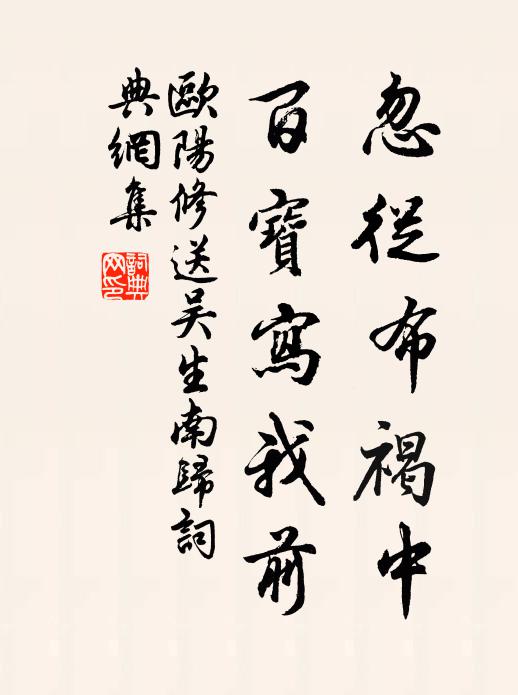 忽從布褐中
百寶寫我前
歐陽修送吴生南歸詞
典網集
詞典
网印